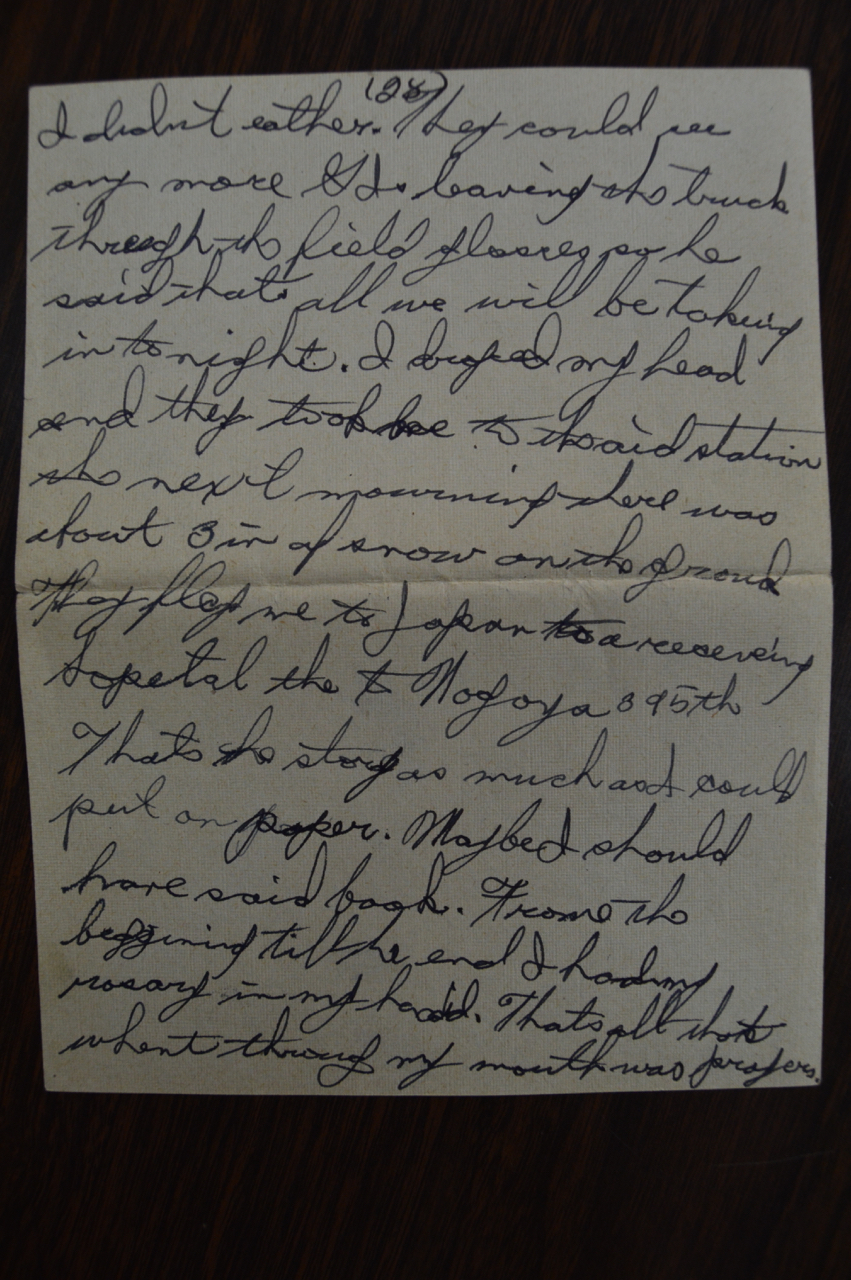 (28)
I didn't eather. They could see
any more GIs leaving the truck
through the field glasses so he
said thats all we will be taking
in tonight. I droped my head
and they took me to the aid station
the next mourning there was
about 3 in of snow on the ground
They flew me to Japan to a receiving
hopetal the Nogoya 395th
Thats the story as much as I could
put on paper. Maybe I should
have said book. Frome the
beggining till the end I had my
rosary in my hand. Thats all that
whent throug my mouth was prayers.